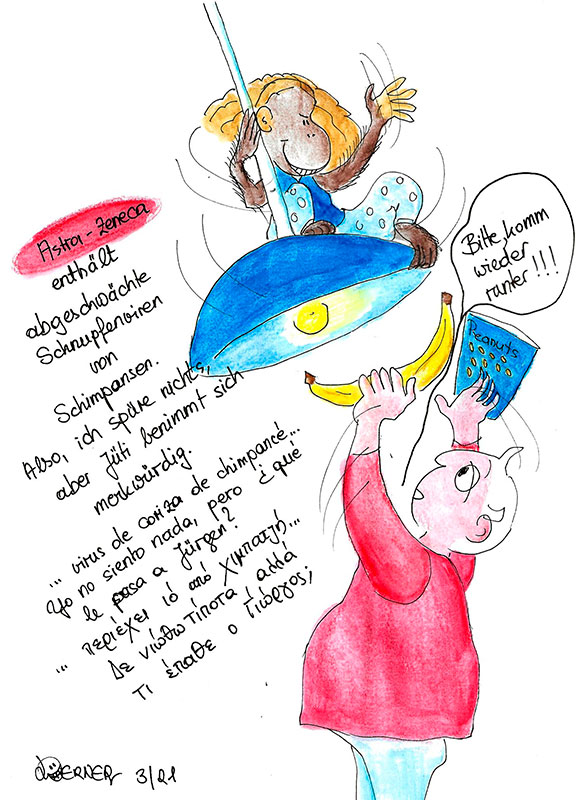 Astra-Zeneca
enthält
abgeschwächte
Schnupfenviren
von
Schimpansen.
Also, ich spüre nichts,
aber Jüti benimmt sich
merkwürdig.
... virus de coriza de chimpancé...
Yo no siento nada, pero ¿qué
le pasa a Jürgen?
... περιέχει ιό από χιμπατζή...
Δε νιώθω τίποτα, αλλά
τι έπαθε ο Γιώργος;
Bitte, komm
wieder
runter!!!
Peanuts
3/21